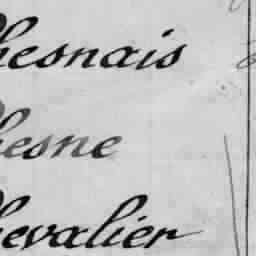 hesnais
hesne
hevalier